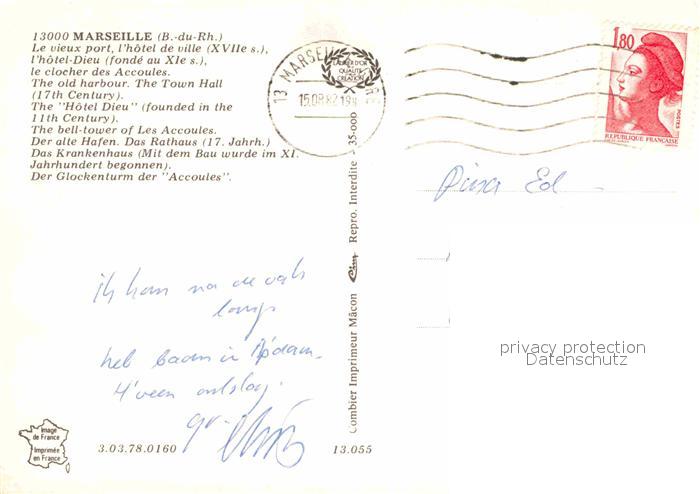 13000 MARSEILLE (B.-du-Rh.)
Le vieux port, l'hôtel de ville (XVIIe s.),
l'hôtel-Dieu (fondé au XIe s.),
le clocher des Accoules.
The old harbour. The Town Hall
(17th Century).
The "Hôtel Dieu" (founded in the
11th Century).
The bell-tower of Les Accoules.
Der alte Hafen. Das Rathaus (17. Jahrh.)
Das Krankenhaus (Mit dem Bau wurde im XI.
Jahrhundert begonnen).
Der Glockenturm der "Accoules".
13 MARSEILLE
LAURIER D'OR
QUALITE
CREATION
1,80
POSTES
REPUBLIQUE FRANÇAISE
Combier Imprimeur Mâcon Cim Repro. Interdite 35-000
Ed
ik kom na de vak
langs
heb baan in
gr.
privacy protection
Datenschutz
Image
de France
Imprimée
en France
3.03.78.0160
13.055